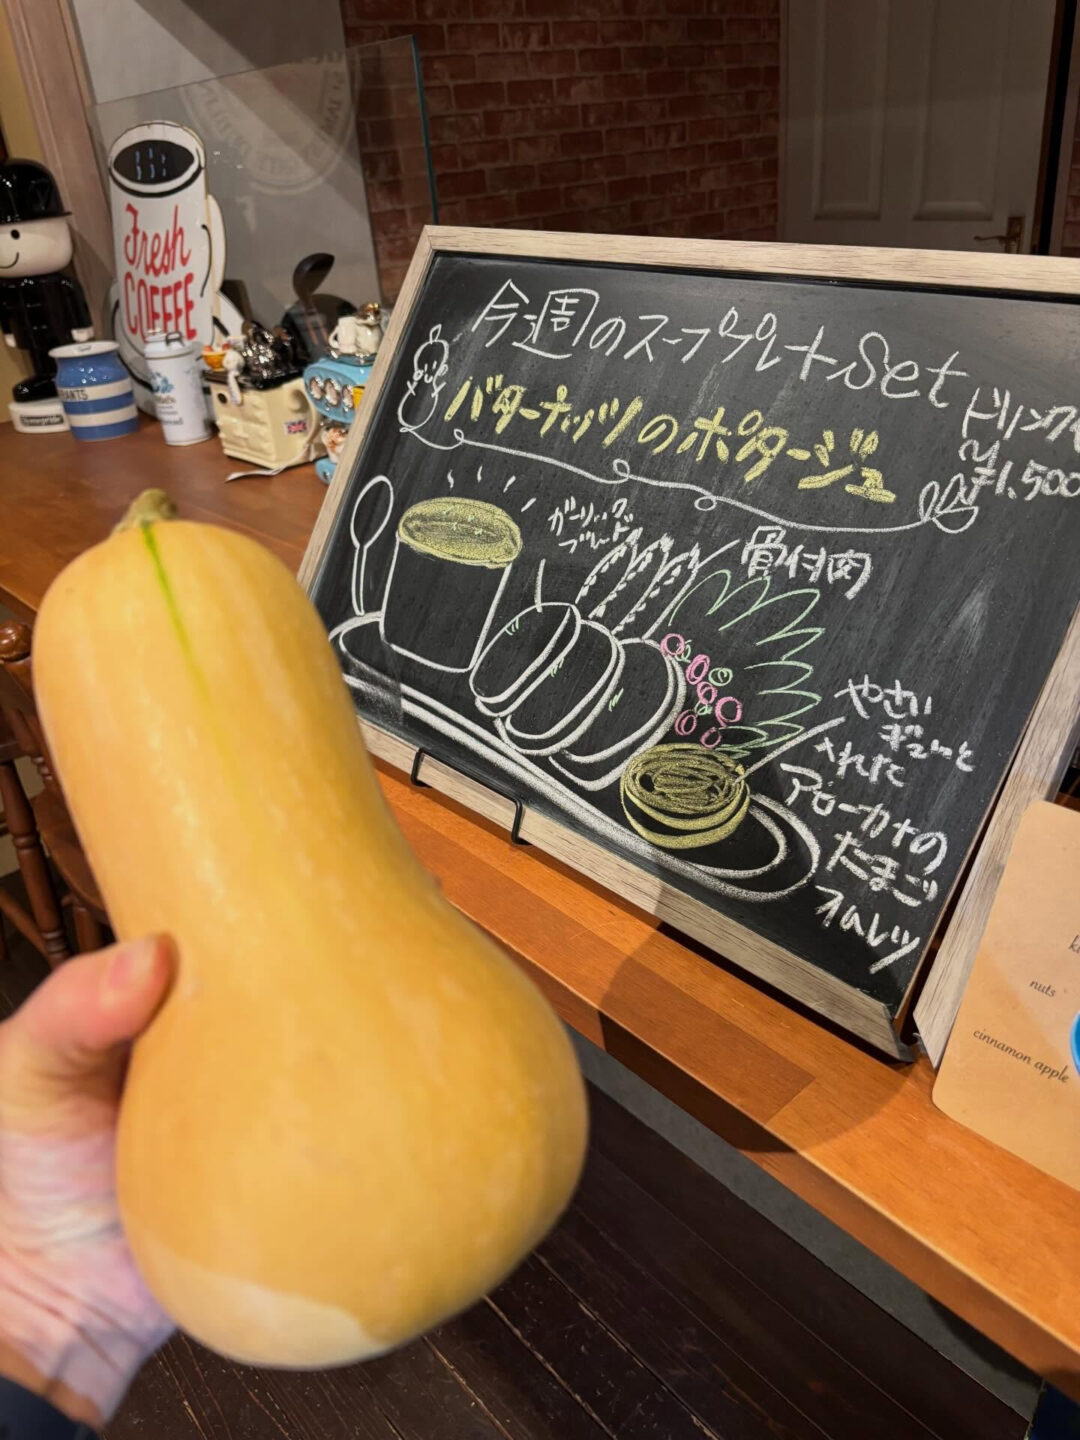 Fresh
COFFEE
今週のスーププレートSet
バターナッツのポタージュ
ドリンク
¥1,500
ガーリック
ブレード
骨付肉
やさい
ギューと
入れた
アローカナの
たまご
オムレツ
nuts
cinnamon apple